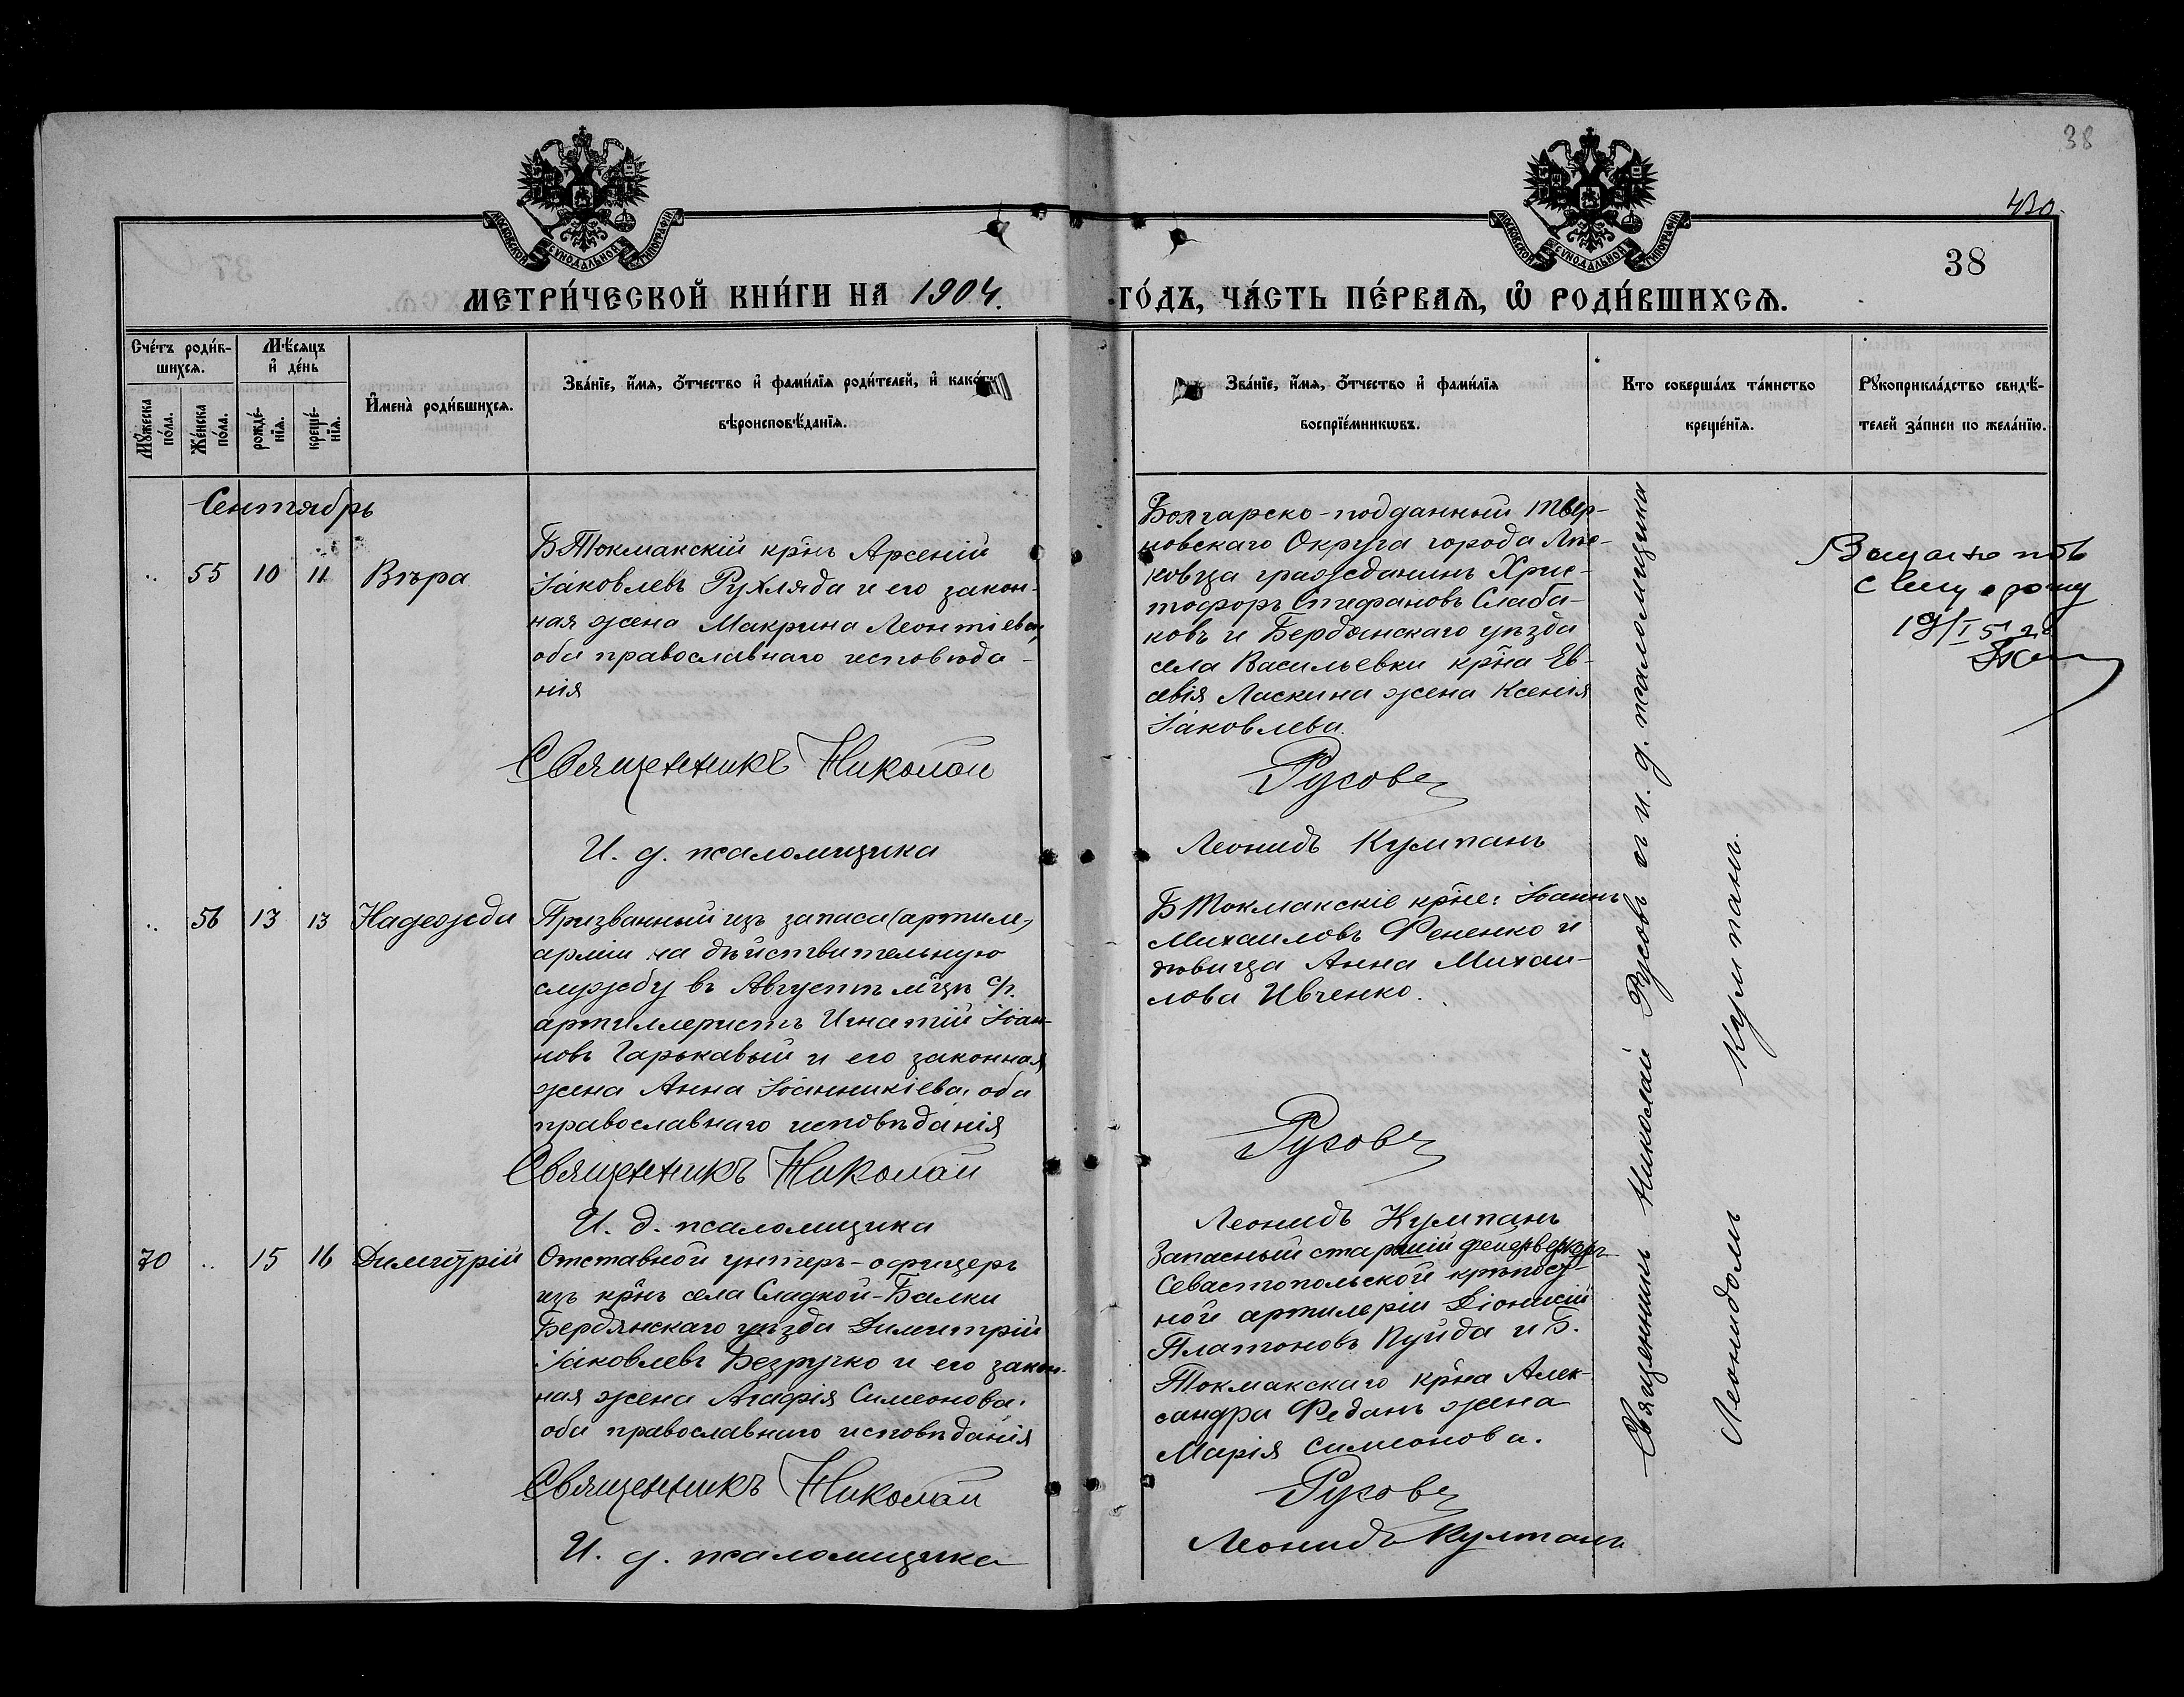 38
430.
МОСКОВСКОЙ СѴНОДАЛЬНОЙ ТИПОГРАФІИ
МОСКОВСКОЙ СѴНОДАЛЬНОЙ ТИПОГРАФІИ
38
МЕТРИ́ЧЕСКОЙ КНИ́ГИ НА 1904.
ГО́ДЪ, ЧА́СТЬ ПЕ́РВАѦ, Ѽ РОДИ́ВШИХСѦ.
Сче́тъ роди́в-
шихсѧ.
Мѣ́сѧцъ
и҆ де́нь
Мꙋ́жеска
по́ла.
Же́нска
по́ла.
рожде́-
нїѧ.
креще́-
нїѧ.
И҆мена̀ роди́вшихсѧ.
Зва́нїе, и҆́мѧ, ѻ҆́тчество и҆ фами́лїѧ роди́телей, и҆ како́гѡ
вѣроисповѣ́данїѧ.
Зва́нїе, и҆́мѧ, ѻ҆́тчество и҆ фами́лїѧ
воспрїе́мникѡвъ.
Кто соверша́лъ та́инство
креще́нїѧ.
Рꙋкоприкла́дство свидѣ́-
телей за́писи по жела́нїю.
Сентябрь
.. 55 10 11 Вѣра
Б Токмакскій кр͠нъ Арсеній
Іаковлевъ Рухляда и его закон-
ная жена Макрина Леонтіева,
оба православнаго исповѣда-
нія
Священникъ Николай
И. д. псаломщика
Болгарско-подданный Тыр-
новскаго Округа города Ляс-
ковца гражданинъ Хрис-
тофоръ Стефановъ Слаба-
ковъ и Бердянскаго уѣзда
села Васильевки кр͠на Ев-
севія Ласкина жена Ксенія
Іаковлева.
Русовъ
Леонидъ Кумпанъ
19/I 51 г.
.. 56 13 13 Надежда
Призванный изъ запаса (артиле)
арміи на дѣйствительную
службу въ Августѣ м͠цѣ с/г.
артиллеристъ Игнатій Іоан-
новъ Гарькавый и его законная
жена Анна Іоанникіева, оба
православнаго исповѣданія
Священникъ Николай
И. д. псаломщика
Б Токмакскіе кр͠не: Іоаннъ
Михаиловъ Фененко и
дѣвица Анна Михаи-
лова Ивченко.
Русовъ
Леонидъ Кумпанъ
70 .. 15 16 Димитрій
Отставной унтеръ-офицеръ
изъ кр͠нъ села Сладкой-Балки
Бердянскаго уѣзда Димитрій
Іаковлевъ Безручко и его закон-
ная жена Агафія Симеонова.
оба православнаго исповѣданія
Священникъ Николай
И. д. псаломщика
Запасный старшій фейерверкеръ
Севастопольской крѣпост-
ной артилеріи Діонисій
Платоновъ Куйда и Б.
Токмакскаго кр͠на Алек-
сандра Феданъ жена
Марія Симеонова.
Русовъ
Леонидъ Кумпанъ
Священникъ Николай Русовъ съ и. д. псаломщика
Леонидомъ Кумпанъ.